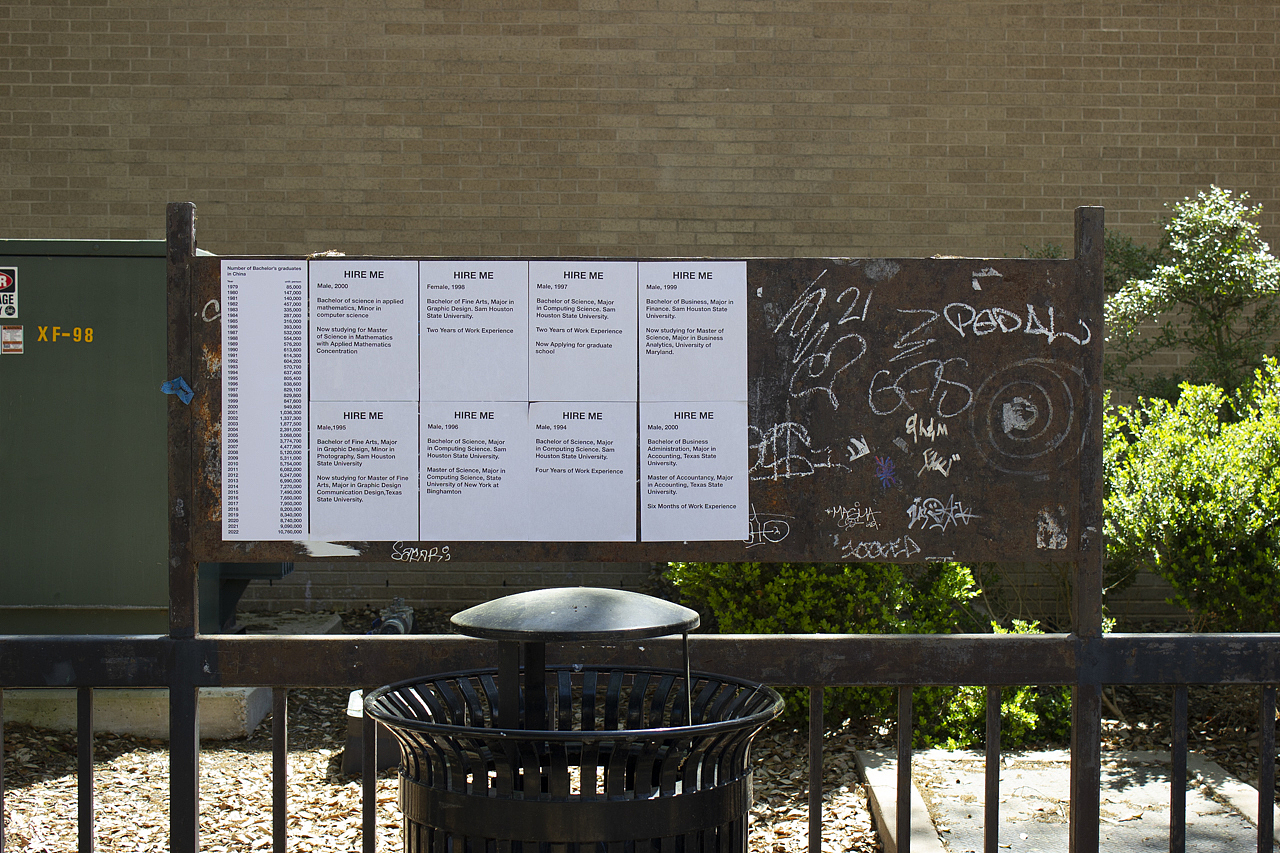 XF-98
Number of Bachelor's graduates
in China
Year unit: person
1979 85,000
1980 147,000
1981 140,000
1982 457,000
1983 335,000
1984 287,000
1985 316,000
1986 393,000
1987 532,000
1988 554,000
1989 576,200
1990 613,600
1991 614,300
1992 604,200
1993 570,700
1994 637,400
1995 805,400
1996 838,600
1997 829,100
1998 829,800
1999 847,600
2000 949,800
2001 1,036,300
2002 1,337,300
2003 1,877,500
2004 2,391,000
2005 3,068,000
2006 3,774,700
2007 4,477,900
2008 5,120,000
2009 5,311,000
2010 5,754,000
2011 6,082,000
2012 6,247,000
2013 6,990,000
2014 7,270,000
2015 7,490,000
2016 7,650,000
2017 7,950,000
2018 8,200,000
2019 8,340,000
2020 8,740,000
2021 9,090,000
2022 10,760,000
HIRE ME
Male, 2000
Bachelor of science in applied
mathematics, Minor in
computer science
Now studying for Master
of Science in Mathematics
with Applied Mathematics
Concentration
HIRE ME
Female, 1998
Bachelor of Fine Arts, Major in
Graphic Design. Sam Houston
State University.
Two Years of Work Experience
HIRE ME
Male, 1997
Bachelor of Science, Major
in Computing Science. Sam
Houston State University.
Two Years of Work Experience
Now Applying for graduate
school
HIRE ME
Male, 1999
Bachelor of Business, Major in
Finance. Sam Houston State
University.
Now studying for Master of
Science, Major in Business
Analytics, University of
Maryland.
HIRE ME
Male,1995
Bachelor of Fine Arts, Major
in Graphic Design, Minor in
Photography, Sam Houston
State University
Now studying for Master of Fine
Arts, Major in Graphic Design
Communication Design,Texas
State University.
HIRE ME
Male, 1996
Bachelor of Science, Major
in Computing Science. Sam
Houston State University.
Master of Science, Major in
Computing Science, State
University of New York at
Binghamton
HIRE ME
Male, 1994
Bachelor of Science, Major
in Computing Science. Sam
Houston State University.
Four Years of Work Experience
HIRE ME
Male, 2000
Bachelor of Business
Administration, Major in
Accounting, Texas State
University.
Master of Accountancy, Major
in Accounting, Texas State
University.
Six Months of Work Experience